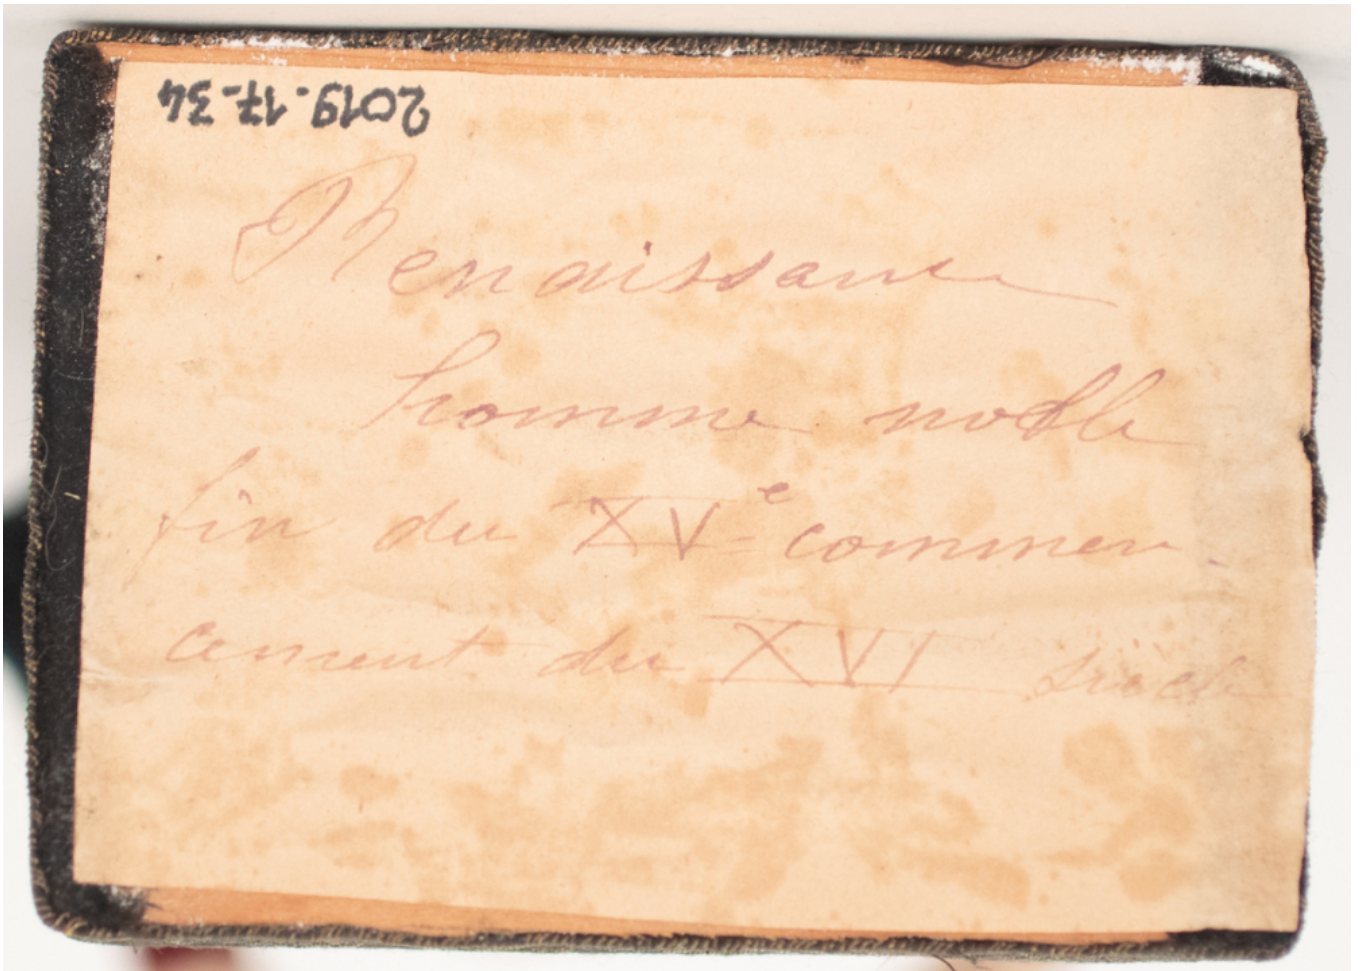 2019-17-34
Renaissance
homme noble
fin du XVe commen-
cement du XVI siecle